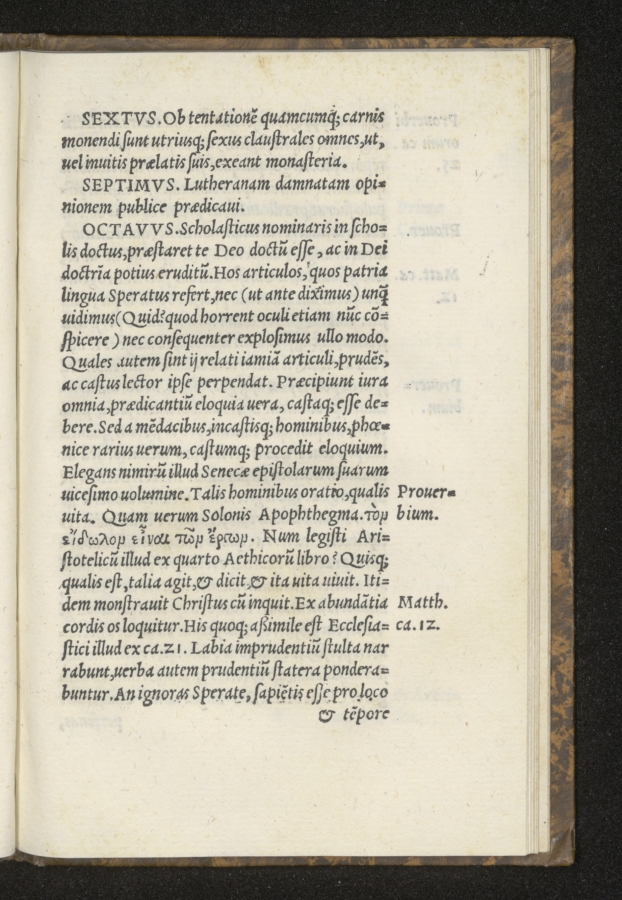 SEXTVS. Ob tentationē quamcumq; carnis
monendi sunt utriusq; sexus claustrales omnes, ut,
uel inuitis prælatis suis, exeant monasteria.
SEPTIMVS. Lutheranam damnatam opi=
nionem publice prædicaui.
OCTAVVS. Scholasticus nominaris in scho=
lis doctus, præstaret te Deo doctū esse, ac in Dei
doctrīa potius eruditū. Hos articulos, quos patria
lingua Speratus refert, nec (ut ante diximus) unq̄
uidimus (Quid? quod horrent oculi etiam nūc cō=
spicere) nec consequenter explosimus ullo modo.
Quales autem sint ij relati iamiā articuli, prudēs,
ac castus lector ipse perpendat. Præcipiunt iura
omnia, prædicantiū eloquia uera, castaq; esse de=
bere. Sed a mēdacibus, incastisq; hominibus, phœ=
nice rarius uerum, castumq; procedit eloquium.
Elegans nimirū illud Senecæ epistolarum suarum
uicesimo uolumine. Talis hominibus oratio, qualis
Prouer=
uita. Quam uerum Solonis Apophthegma. τὸμ
bium.
εἴδωλομ εἶναι τῶμ ἔρτωμ. Num legisti Ari=
stotelicū illud ex quarto Aethicorū libro? Quisq;
qualis est, talia agit, & dicit, & ita uita uiuit. Iti=
dem monstrauit Christus cū inquit. Ex abundātia
Matth.
cordis os loquitur. His quoq; aßimile est Ecclesia=
ca. 12.
stici illud ex ca. 21. Labia imprudentiū stulta nar
rabunt, uerba autem prudentiū statera pondera=
buntur. An ignoras Sperate, sapiētis esse pro loco
& tēpore